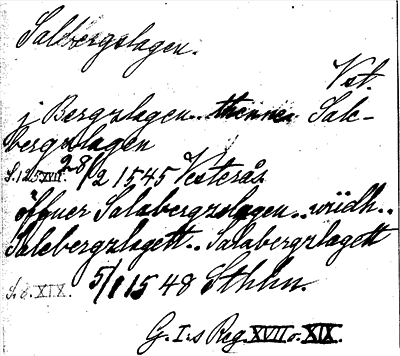 Salbergslagen.
Vst.
j Bergzlagen.. thenne Sale-
bergzlagen
S.125 XVII. 28/2 1545 Vesterås
öffuer Salabergzslagen.. widh..
Salebergzlagett.. Salabergzlagett
S.8. XIX. 5/1 1548 Sthlm.
G. I:s Reg. XVII o. XIX.